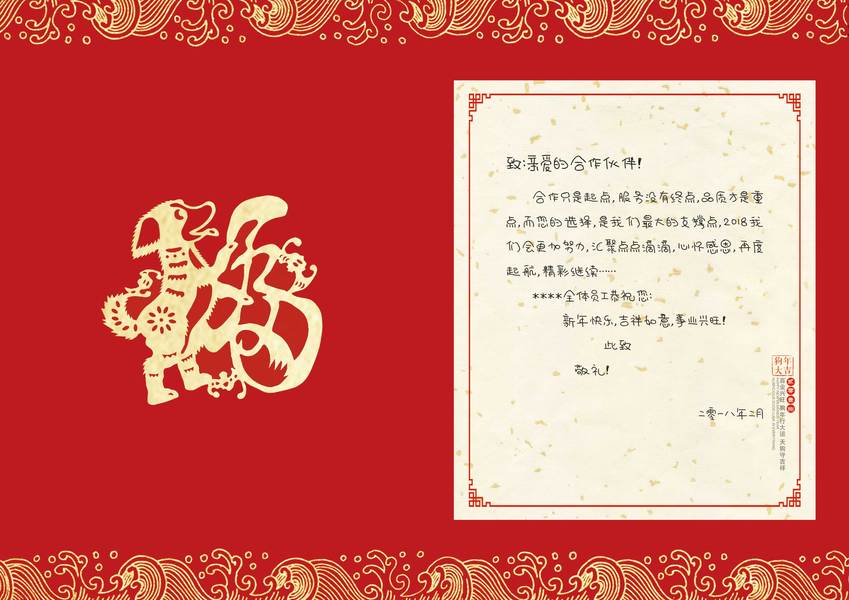 福
致:亲爱的合作伙伴!
合作只是起点,服务没有终点,品质才是重
点,而您的选择,是我们最大的支撑点,2018我
们会更加努力,汇聚点点滴滴,心怀感恩,再度
起航,精彩继续……
****全体员工恭祝您:
新年快乐,吉祥如意,事业兴旺!
此致
敬礼!
二零一八年二月
狗年
大吉